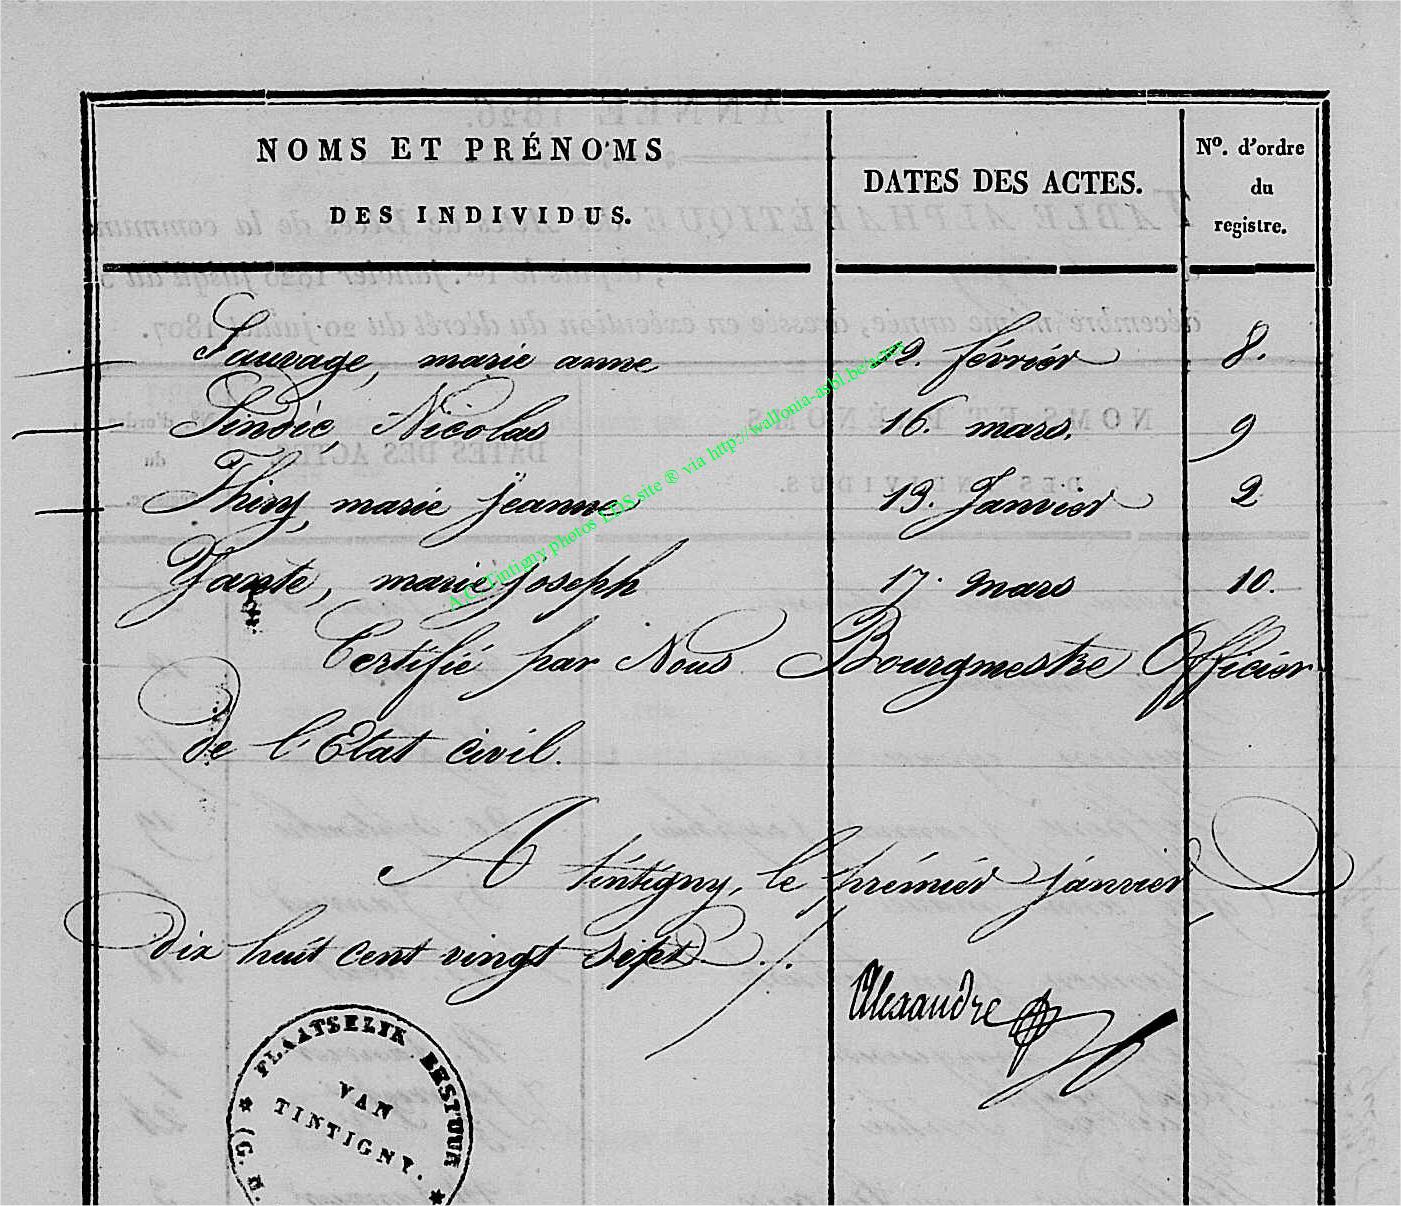 NOMS ET PRÉNOMS
DES INDIVIDUS.
DATES DES ACTES.
Nº. d'ordre
du
registre.
Sauvage, marie anne 12. février 8.
Sindic, Nicolas 16. mars. 9
Thiry, marie Jeanne 13. Janvier 2
Zante, marie joseph 17. mars 10.
Certifié par Nous Bourgmestre Officier
de l'Etat civil.
A tintigny, le prémiér janvier
dix huit cent vingt sept
Alexandre
PLAATSELIK BESTUUR
VAN
TINTIGNY.
A.C. Tintigny photos LHS site ® via http://wallonia-asbl.be/actes